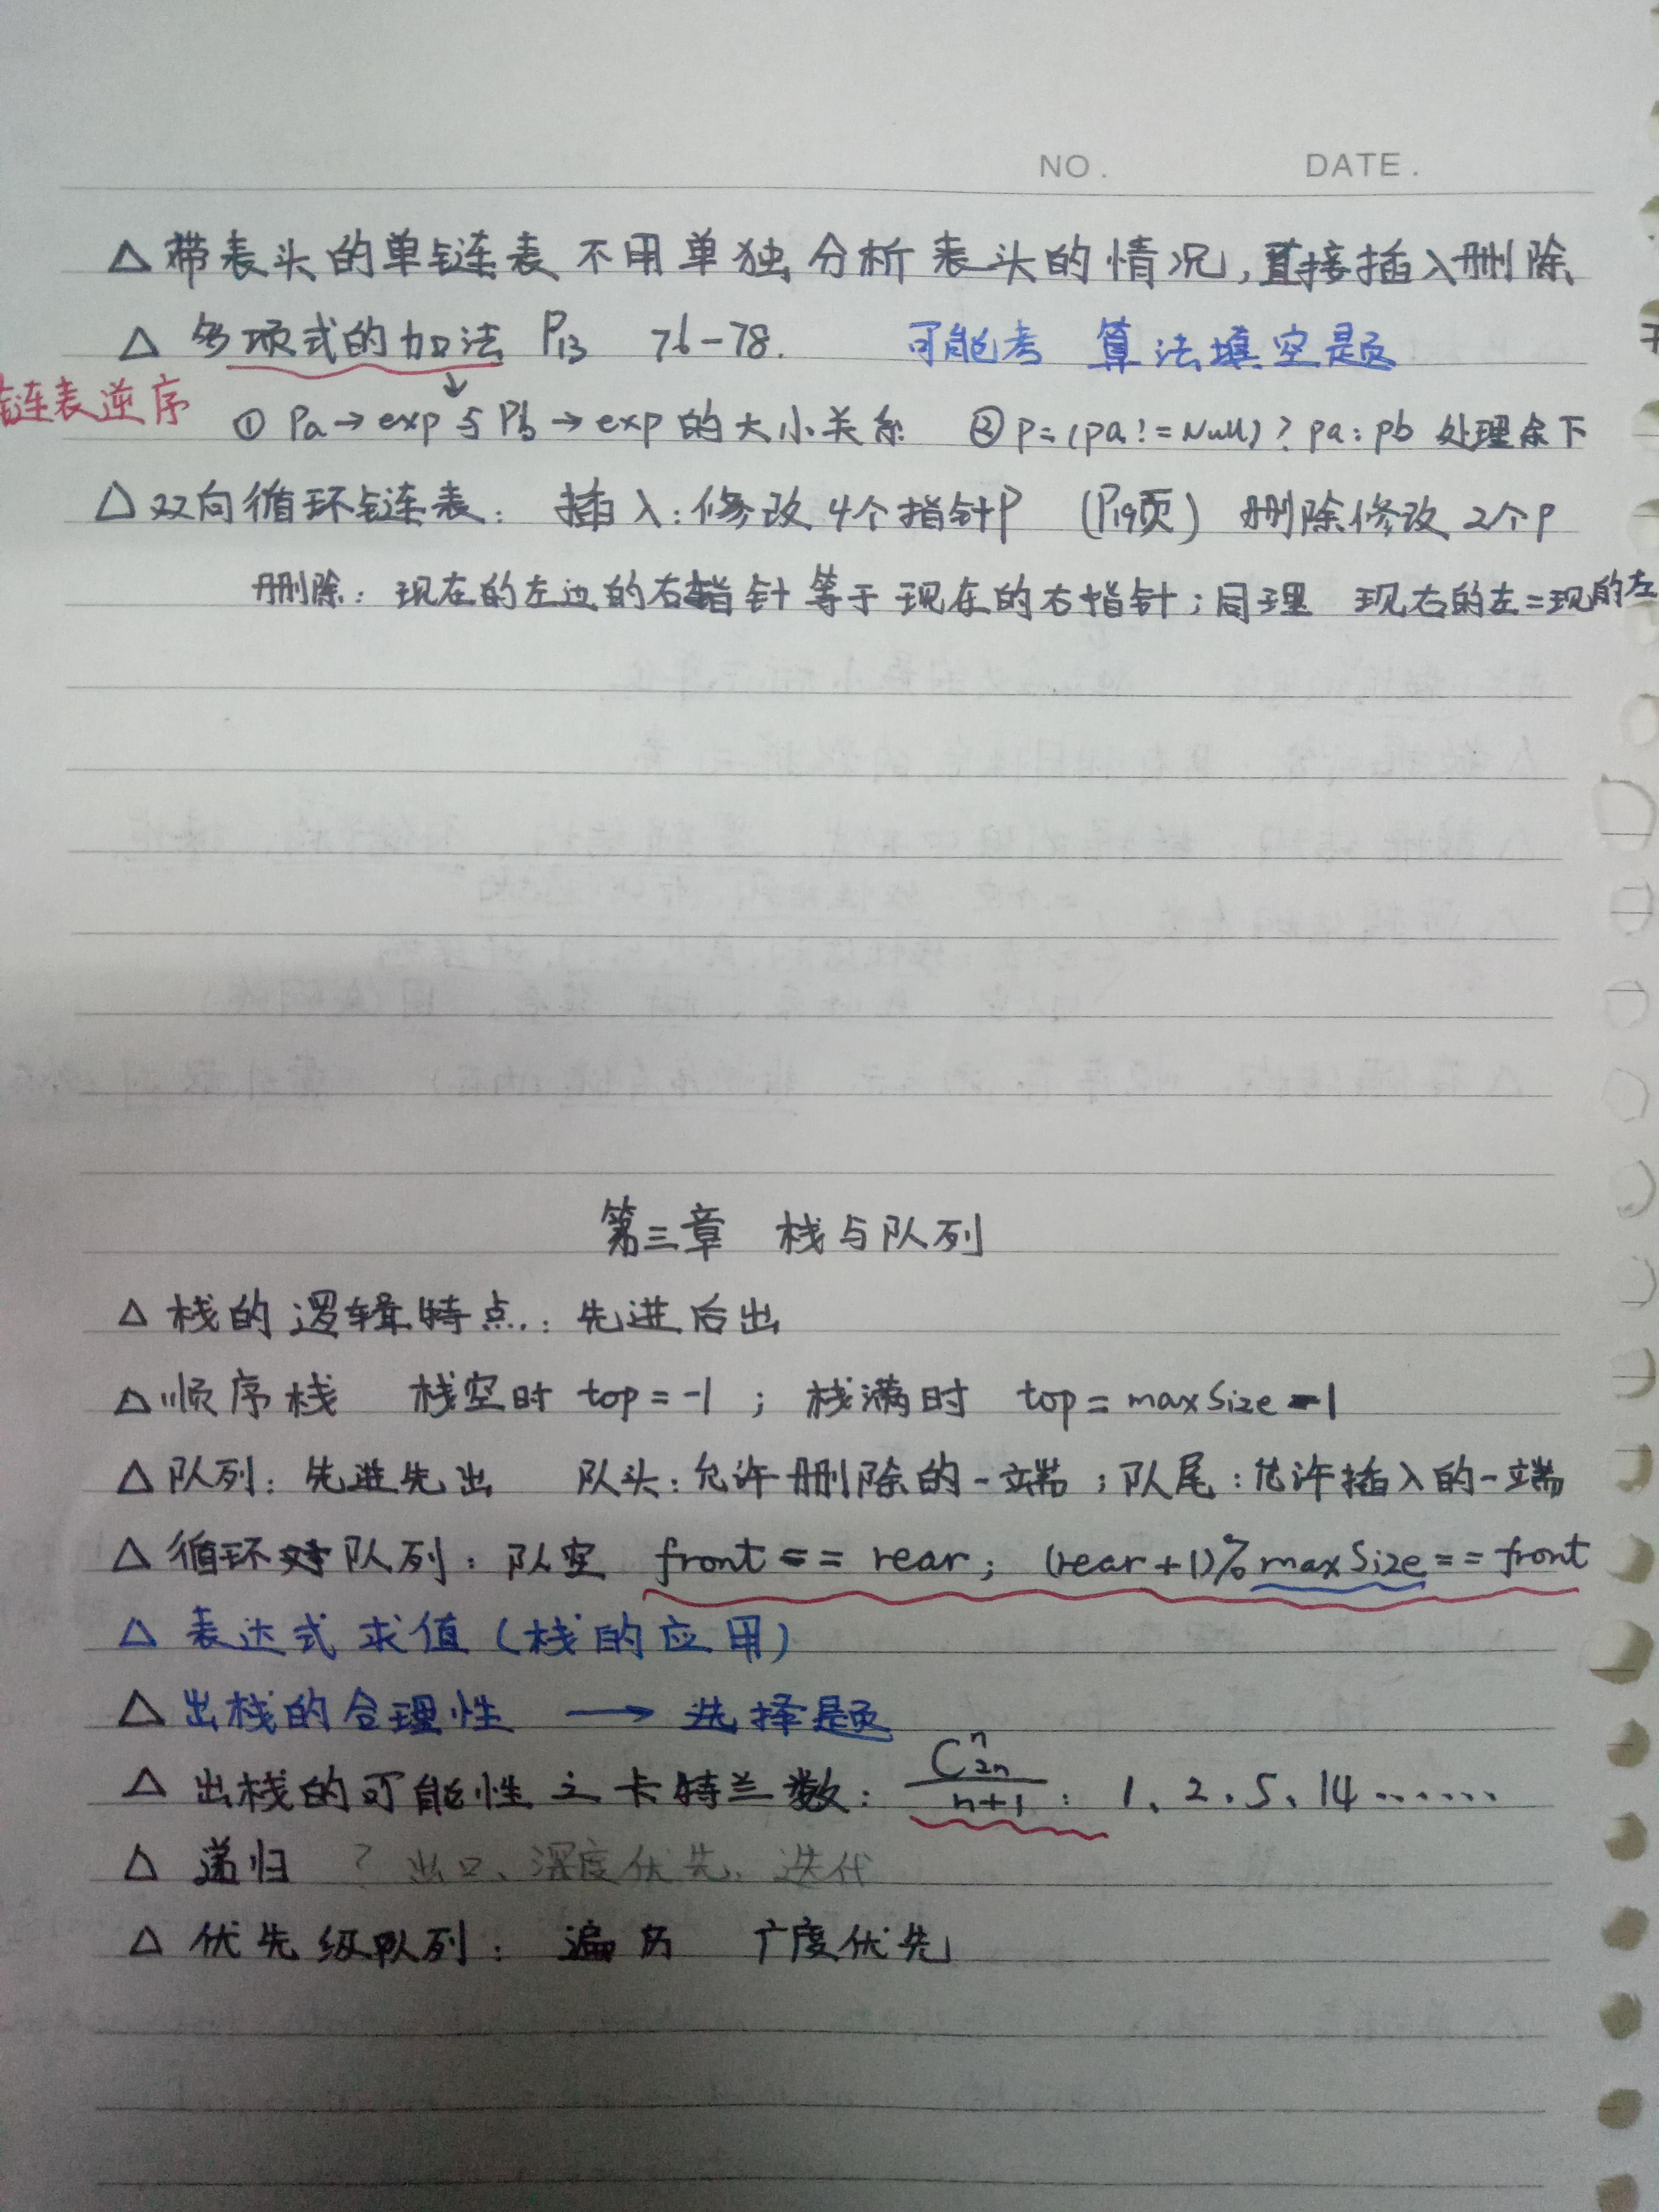 NO. DATE.
△ 带表头的单链表 不用单独分析表头的情况,直接插入删除
△ 多项式的加法 P13 76-78. 可能考 算法填空题
链表逆序
① Pa→exp与Pb→exp的大小关系 ② P=(pa!=Null)?pa:pb 处理余下
△ 双向循环链表: 插入:修改4个指针P (P19页) 删除修改2个P
删除:现在的左边的右指针等于现在的右指针;同理 现右的左=现的左
第三章 栈与队列
△ 栈的逻辑特点:先进后出
△ 顺序栈 栈空时 top=-1;栈满时 top=maxSize-1
△ 队列:先进先出 队头:允许删除的一端;队尾:允许插入的一端
△ 循环队列:队空 front==rear; (rear+1)%maxSize==front
△ 表达式求值(栈的应用)
△ 出栈的合理性 → 选择题
△ 出栈的可能性之卡特兰数: C_{2n}^{n}/(n+1): 1、2、5、14......
△ 递归 ? 出口、深度优先、迭代
△ 优先级队列: 遍历 广度优先